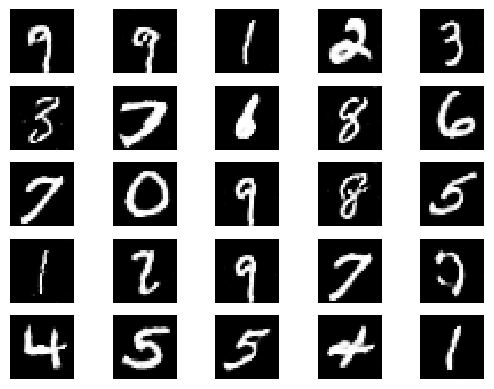 9 9 1 2 3
3 7 6 8 6
7 0 9 8 5
1 2 9 7
4 5 5 4 1